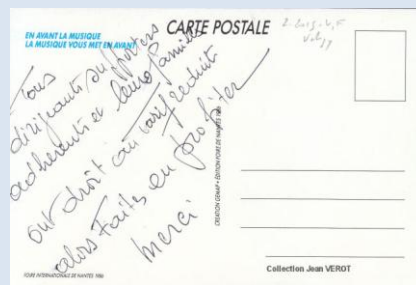 EN AVANT LA MUSIQUE
LA MUSIQUE VOUS MET EN AVANT
CARTE POSTALE
Tous
dirigeants supporters
adhérents et leurs familles
ont droit au tarif réduit
alors Faites en profiter
Merci
CREATION GEMAP • EDITION FOIRE DE NANTES 1986
FOIRE INTERNATIONALE DE NANTES 1986
Collection Jean VEROT